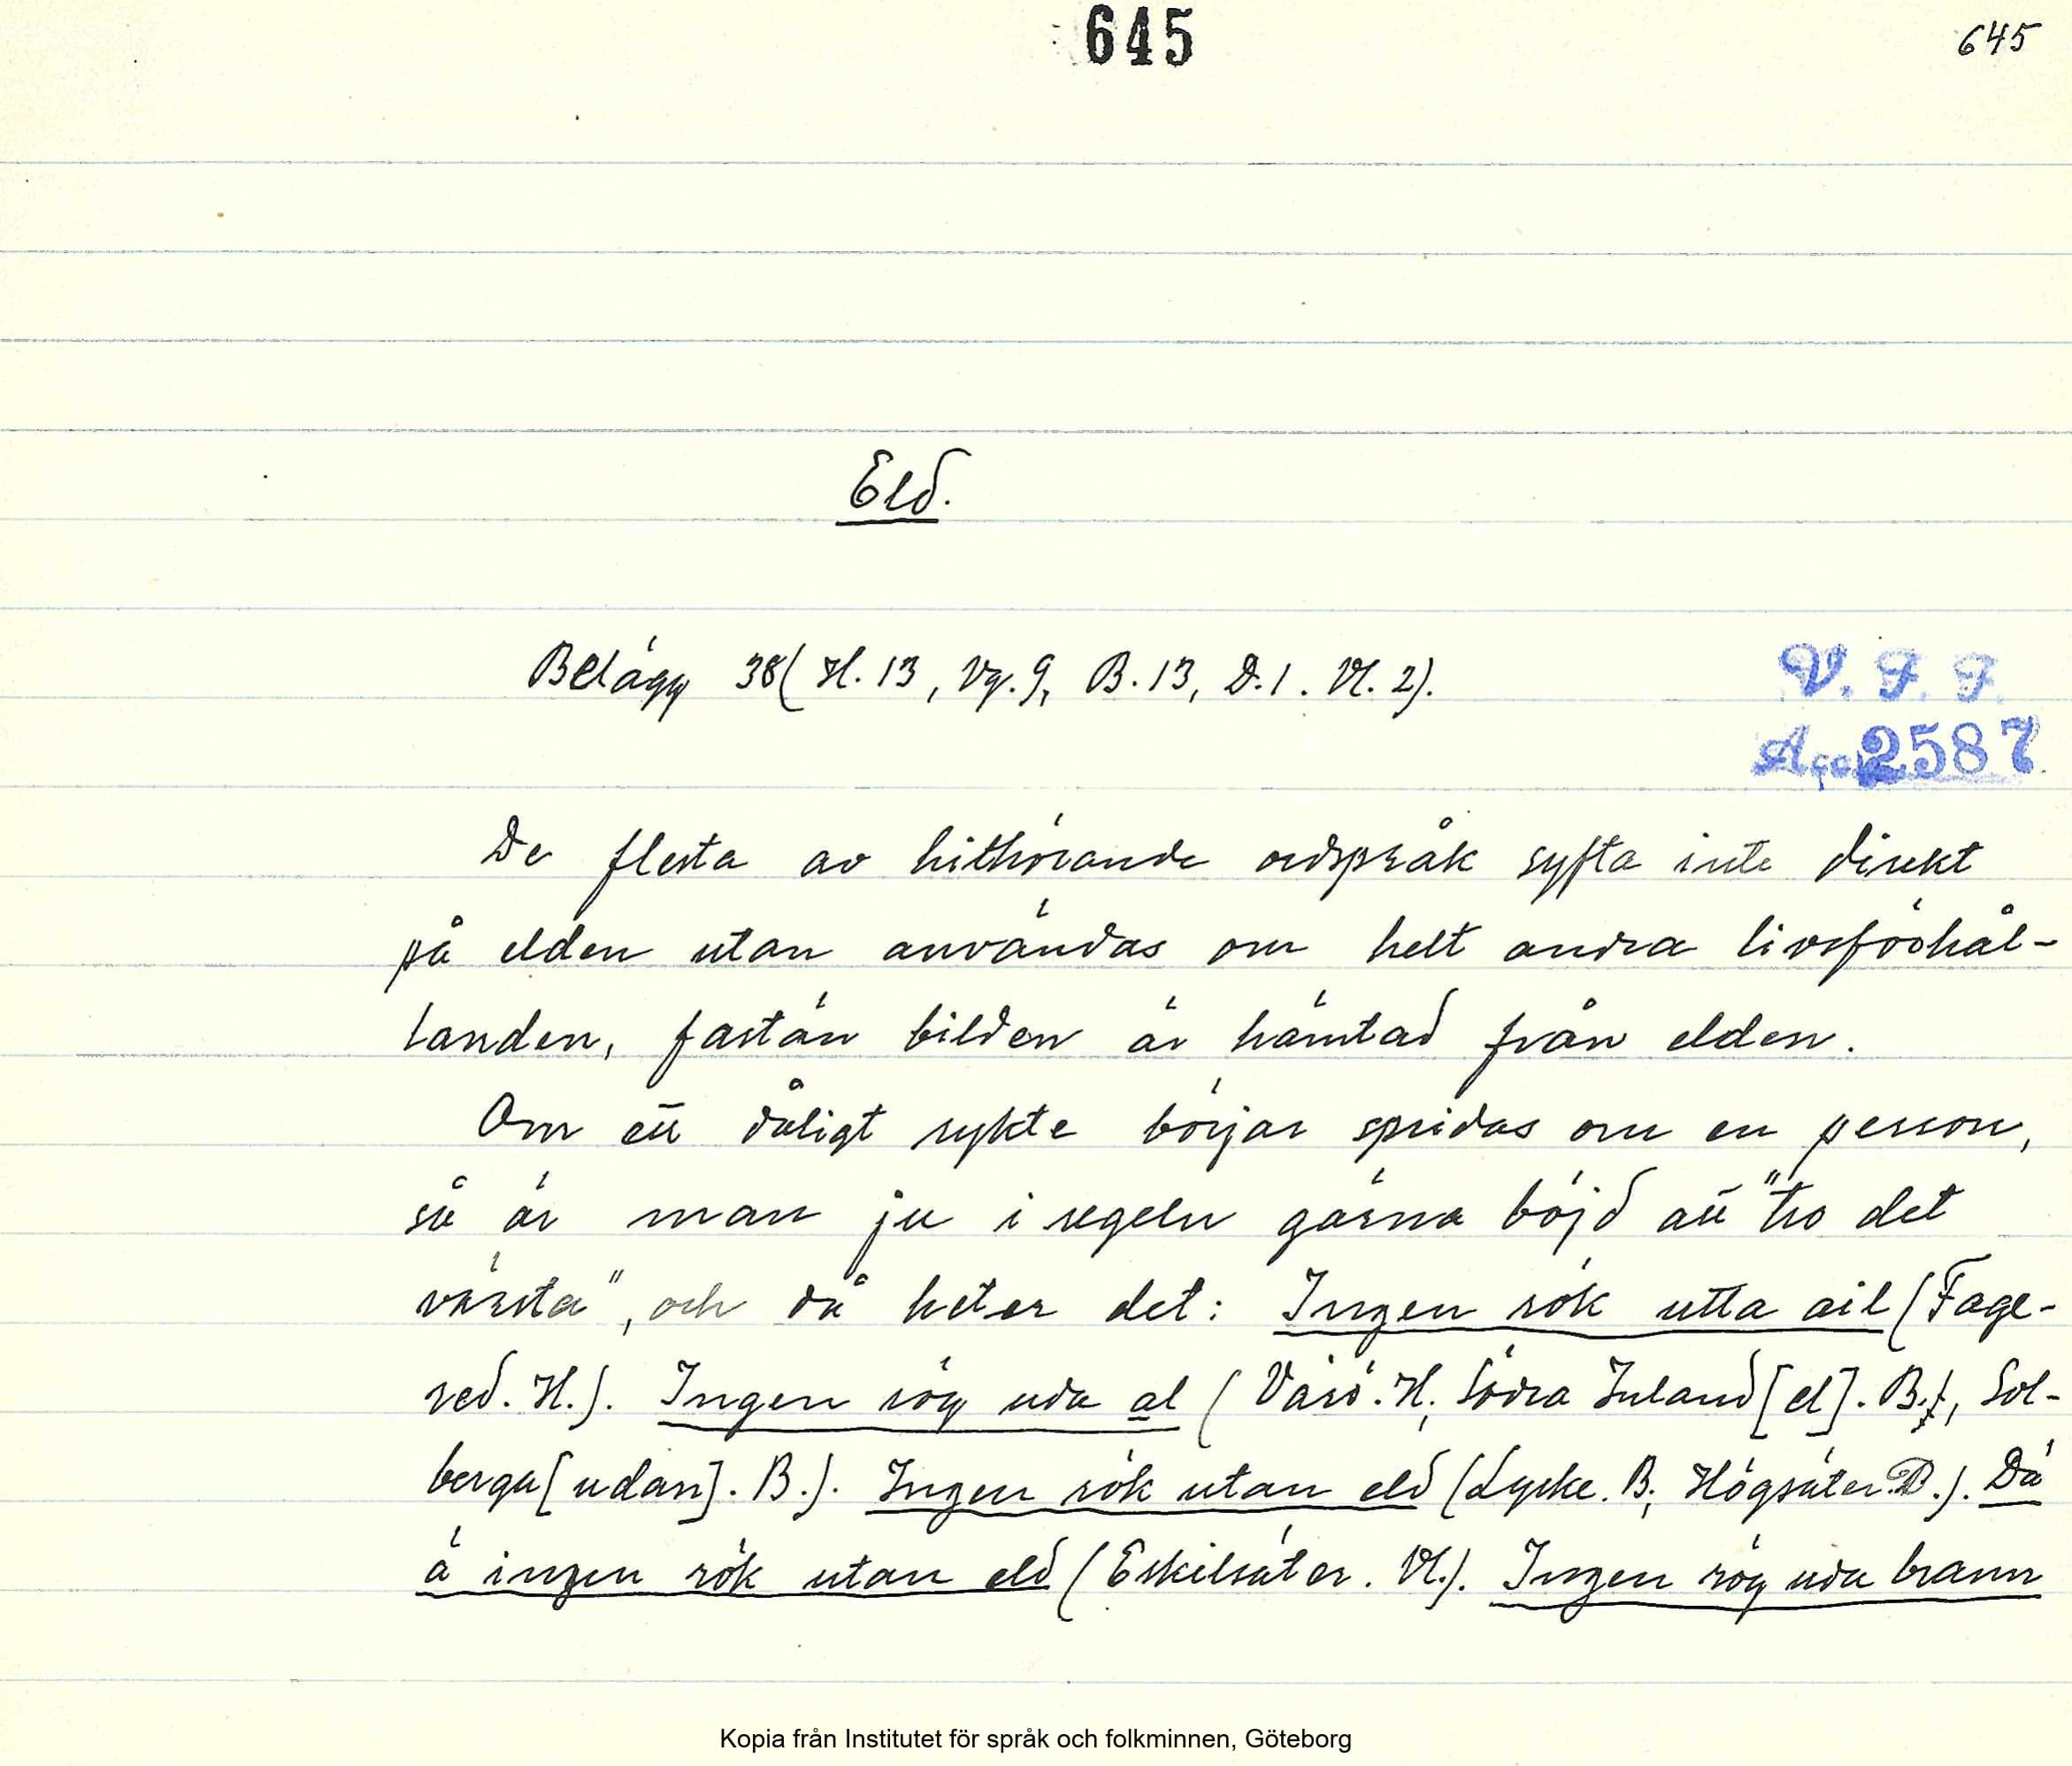 645
645
Eld.
Belägg 38 (H. 13, Vg. 9, B. 13, D. 1. Vl. 2).
V. F. F.
Acc. 2587
De flesta av hithörande ordspråk syfta inte direkt
på elden utan användas om helt andra livsförhål-
landen, fastän bilden är hämtad från elden.
Om ett dåligt rykte börjar spridas om en person,
så är man ju i regeln gärna böjd att "tro det
värsta", och då heter det: Ingen rök utta ail (Fage-
red. H.). Ingen rög uda al (Värö. H; Södra Inland [el]. B., Sol-
berga [udan]. B.). Ingen rök utan eld (Lycke. B; Högsäter. D.). Dä
ä ingen rök utan eld (Eskilsäter. Vl.). Ingen rög uda brann
Kopia från Institutet för språk och folkminnen, Göteborg